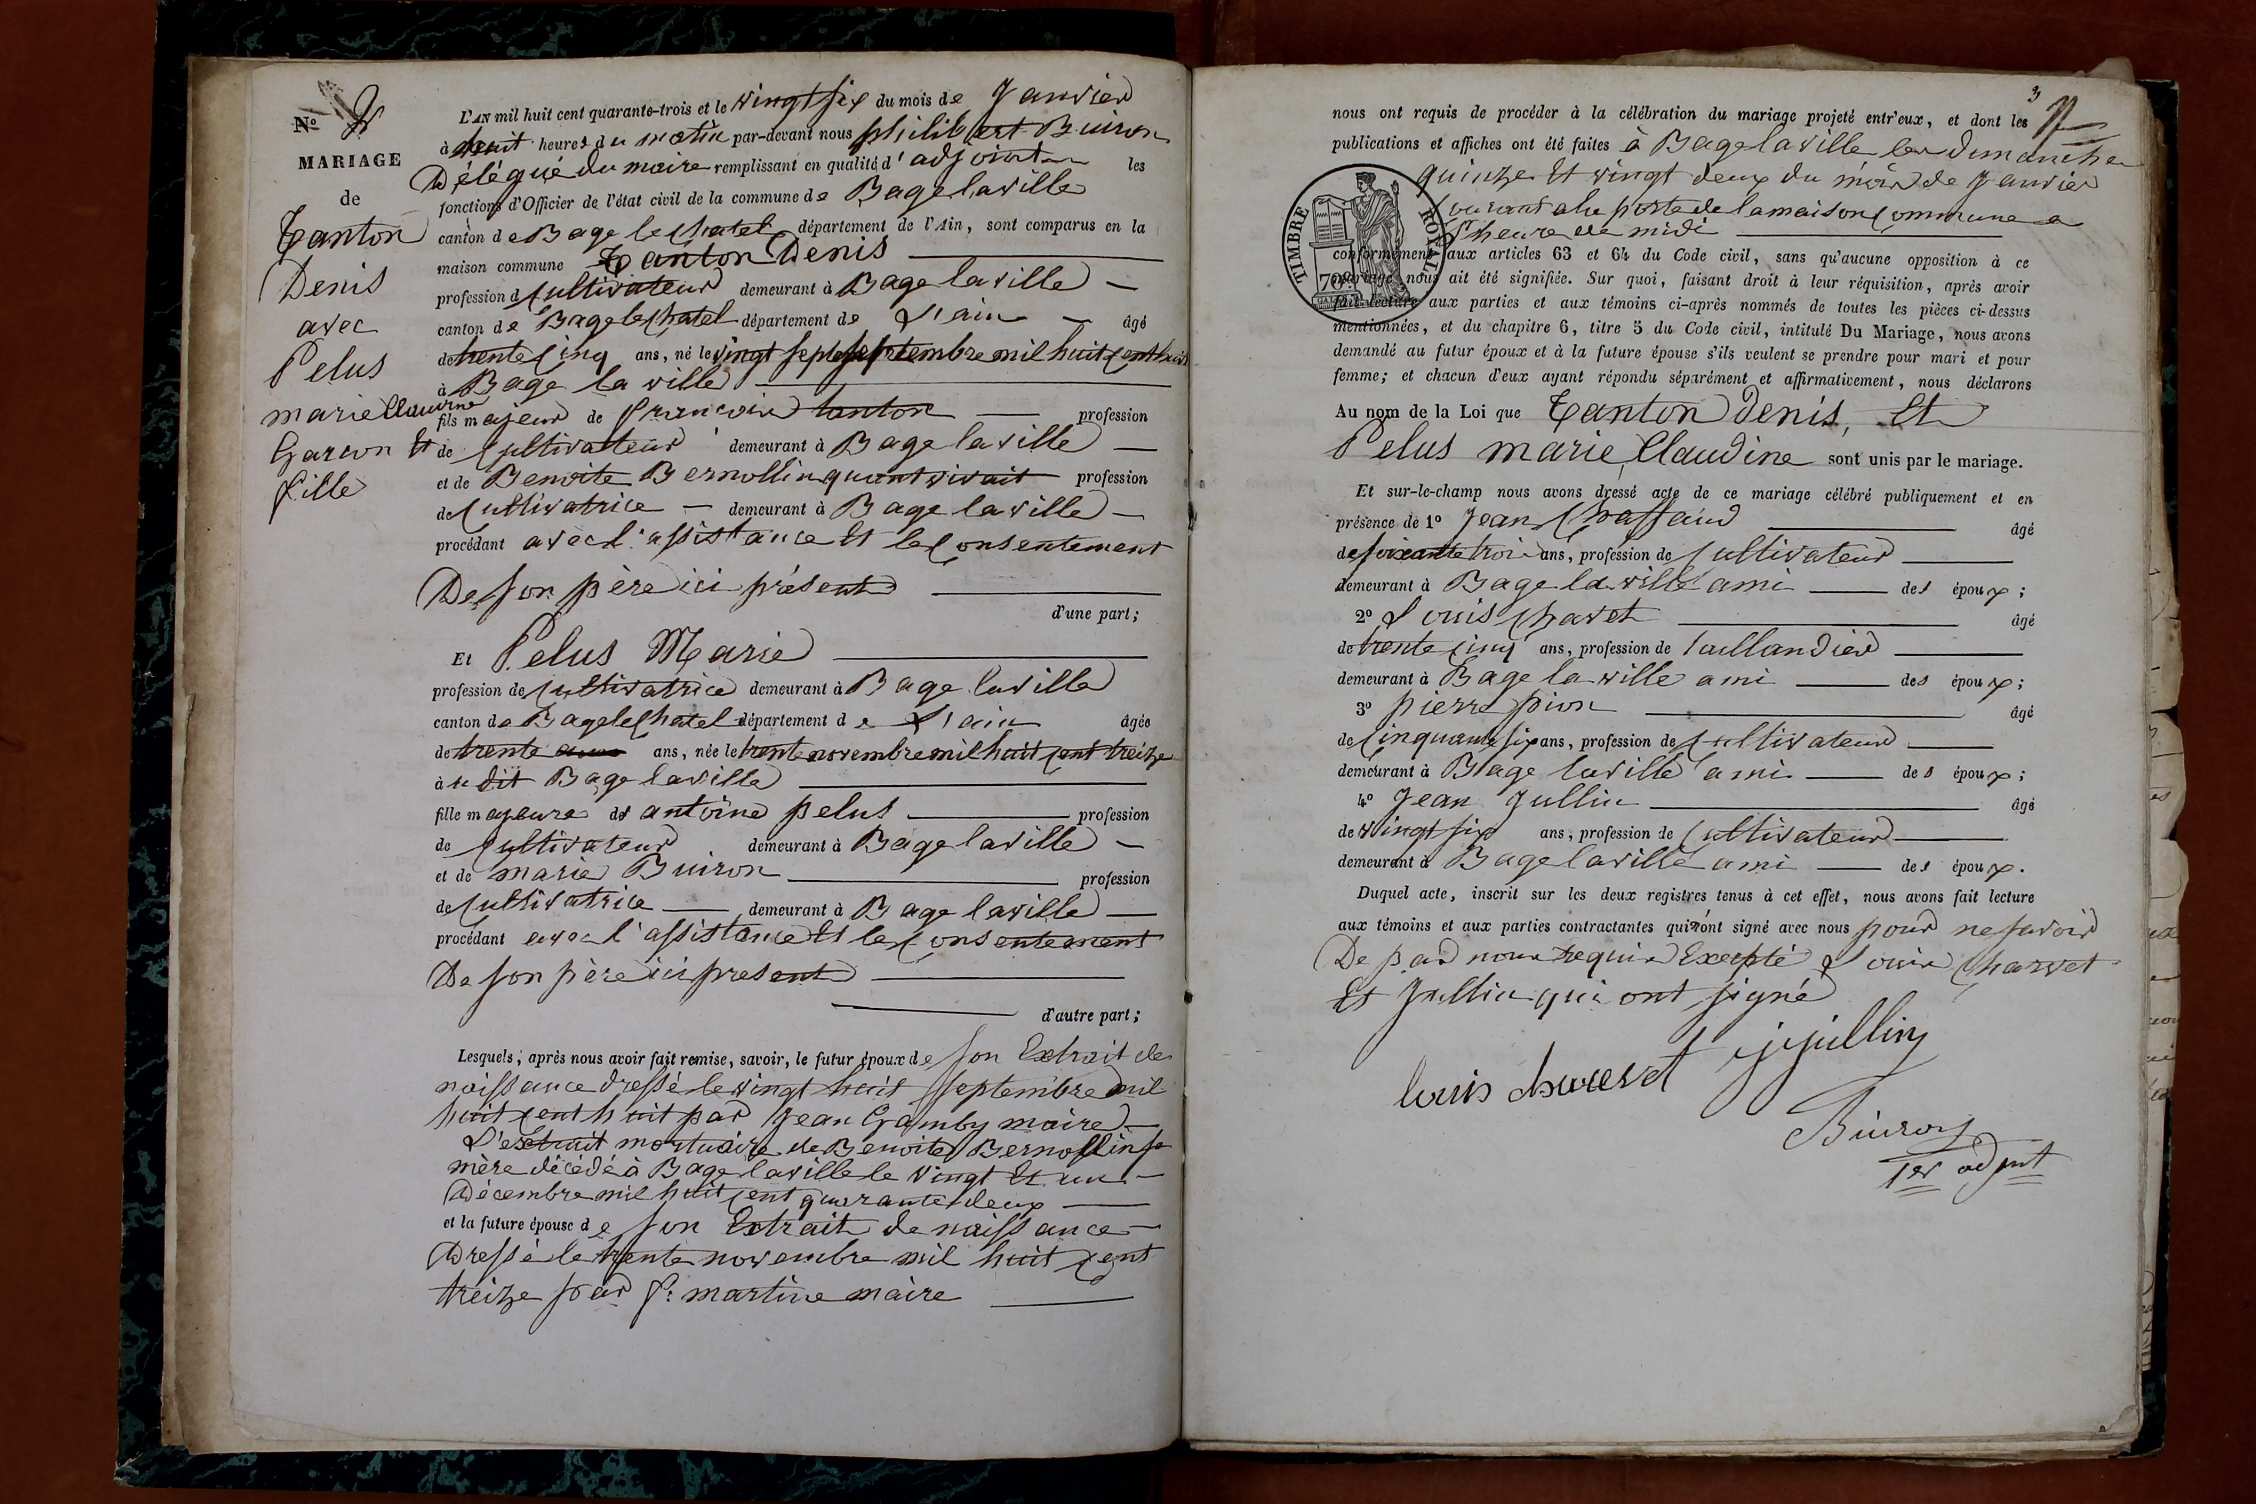 Nº 2
MARIAGE
de
Tanton
Denis
avec
Pelus
marie Claudine
Garcon Et
fille
L'AN mil huit cent quarante-trois et le vingt six du mois de Janvier
à huit heures du matin par-devant nous philibert Buiron
Délégué du maire remplissant en qualité d'adjoint les
fonctions d'Officier de l'état civil de la commune de Bage la ville
canton de Bage le Chatel département de l'Ain, sont comparus en la
maison commune Tanton Denis
profession de Cultivateur demeurant à Bage la ville
canton de Bage le Chatel département de L'ain âgé
de trente Cinq ans, né le vingt sept septembre mil huit Cent huit
à Bage la ville
fils majeur de francois tanton profession
de Cultivateur demeurant à Bage la ville
et de Benoite Bernollin quant vivait profession
de Cultivatrice demeurant à Bage la ville
procédant avec l'assistance Et le Consentement
De son père ici présent
d'une part;
Et Pelus Marie
profession de Cultivatrice demeurant à Bage la ville
canton de Bage le Chatel département de L'ain âgée
de trente ans, née le trente novembre mil huit Cent treize
à u dit Bage la ville
fille majeure de antoine pelus profession
de Cultivateur demeurant à Bage la ville
et de marie Buiron profession
de Cultivatrice demeurant à Bage la ville
procédant avec l'assistance Et le Consentement
De son père ici present
d'autre part;
Lesquels, après nous avoir fait remise, savoir, le futur époux de son Extrait de
naissance dressé le vingt huit septembre mil
huit Cent huit par Jean Gamby maire
L'extrait mortuaire de Benoite Bernollin sa
mère décédé à Bage la ville le vingt Et un
Décembre mil huit Cent quarante deux
et la future épouse de son Extrait de naissance
Dressé le trente novembre mil huit Cent
treize par f: martine maire
3
nous ont requis de procéder à la célébration du mariage projeté entr'eux, et dont les
publications et affiches ont été faites à Bage la ville les dimanche
quinze Et vingt deux du mois de Janvier
Courant a la porte de la maison Commune a
l'heure de midi
TIMBRE ROYAL
conformément aux articles 63 et 64 du Code civil, sans qu'aucune opposition à ce
mariage nous ait été signifiée. Sur quoi, faisant droit à leur réquisition, après avoir
fait lecture aux parties et aux témoins ci-après nommés de toutes les pièces ci-dessus
mentionnées, et du chapitre 6, titre 5 du Code civil, intitulé Du Mariage, nous avons
demandé au futur époux et à la future épouse s'ils veulent se prendre pour mari et pour
femme; et chacun d'eux ayant répondu séparément et affirmativement, nous déclarons
Au nom de la Loi que Tanton Denis, Et
Pelus marie Claudine sont unis par le mariage.
Et sur-le-champ nous avons dressé acte de ce mariage célébré publiquement et en
présence de 1º Jean Chaffaud âgé
de soixante trois ans, profession de Cultivateur
demeurant à Bage la ville ami des époux;
2º Louis Chavet âgé
de trente Cinq ans, profession de taillandier
demeurant à Bage la ville ami des époux;
3º pierre pion âgé
de Cinquante six ans, profession de Cultivateur
demeurant à Bage la ville ami des époux;
4º Jean Jullin âgé
de vingt six ans, profession de Cultivateur
demeurant à Bage la ville ami des époux.
Duquel acte, inscrit sur les deux registres tenus à cet effet, nous avons fait lecture
aux témoins et aux parties contractantes qui n'ont signé avec nous pour ne savoir
De par nous requis Excepté Louis Charvet
Et Jullin qui ont signé
louis charvet j jullin
Buiron
1er adjoint